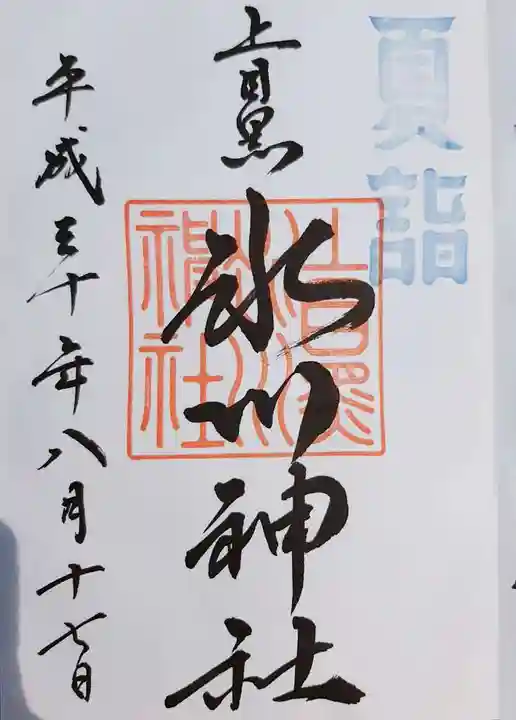 夏詣
上目黒
氷川神社
上目黒氷川神社
平成三十年八月十七日